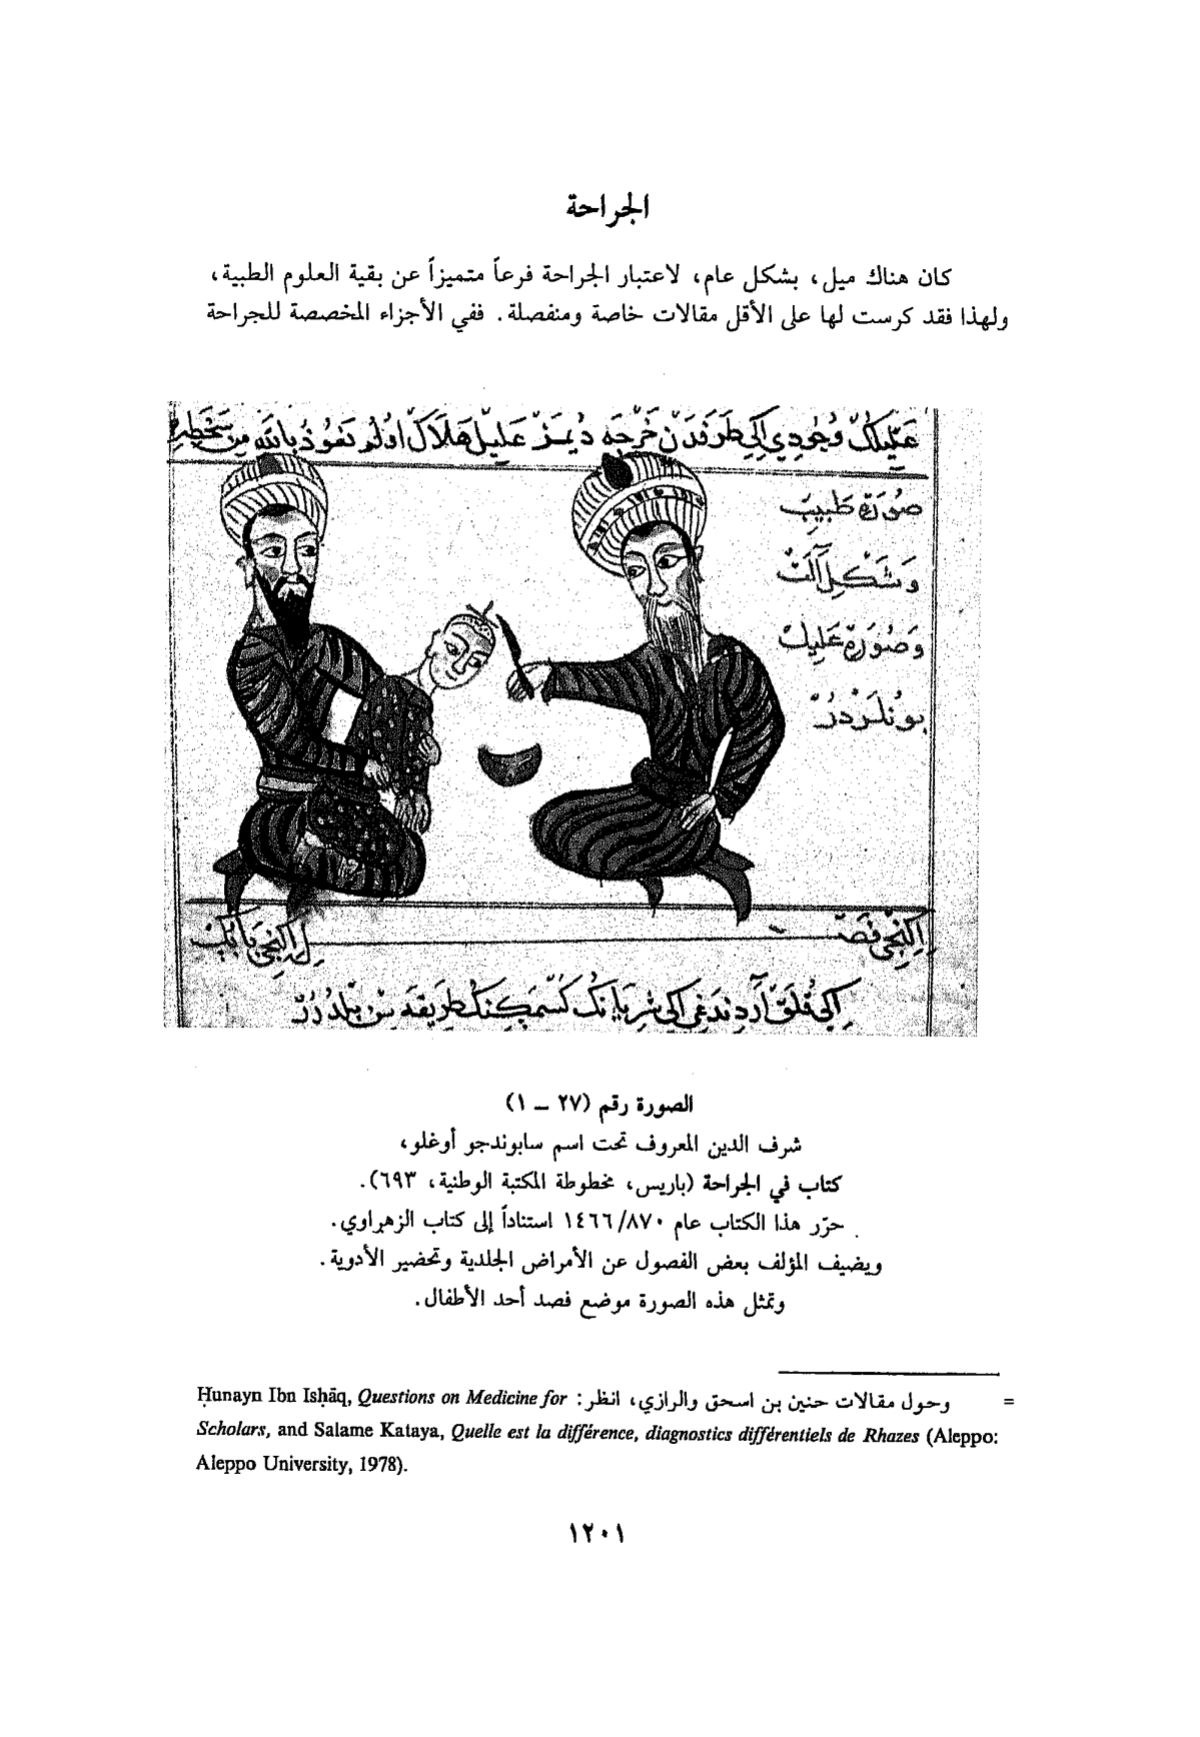 الجراحة
كان هناك ميل، بشكل عام، لاعتبار الجراحة فرعاً متميزاً عن بقية العلوم الطبية،
ولهذا فقد كرست لها على الأقل مقالات خاصة ومنفصلة. ففي الأجزاء المخصصة للجراحة
صُورَةِ طَبِيبْ
وَشَكْلِ آلَتْ
وَصُورَةِ عَلِيلْ
بُونْلَرْدُرْ
الصورة رقم (٢٧ – ١)
شرف الدين المعروف تحت اسم سابوندجو أوغلو،
كتاب في الجراحة (باريس، مخطوطة المكتبة الوطنية، ٦٩٣).
حرّر هذا الكتاب عام ٨٧٠/١٤٦٦ استناداً إلى كتاب الزهراوي.
ويضيف المؤلف بعض الفصول عن الأمراض الجلدية وتحضير الأدوية.
وتمثل هذه الصورة موضع فصد أحد الأطفال.
= وحول مقالات حنين بن اسحق والرازي، انظر: Ḥunayn Ibn Isḥāq, Questions on Medicine for
Scholars, and Salame Kataya, Quelle est la différence, diagnostics différentiels de Rhazes (Aleppo:
Aleppo University, 1978).
١٢٠١